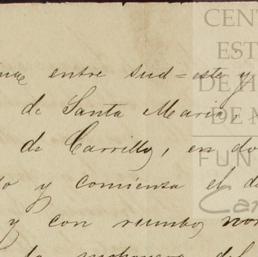 entre sud=este y
de Santa Maria,
de Carrillo, en do
y comienza el d
y con rumbo nor
la del
CEN
EST
DE H
DE M
FUN
Car